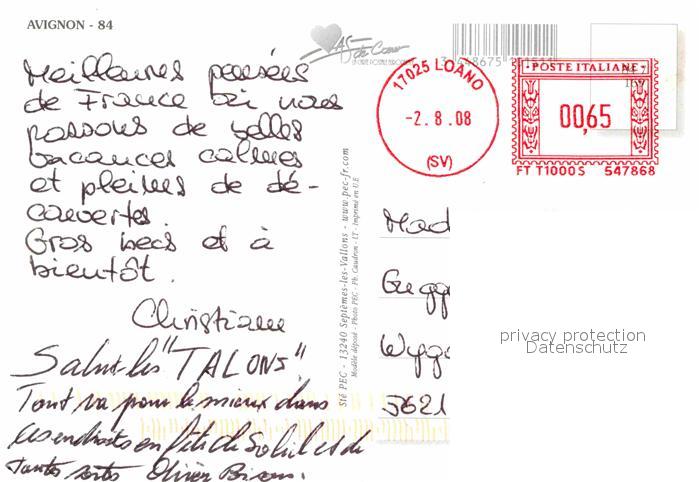 AVIGNON - 84
As de Coeur
LA CARTE POSTALE EUROPÉENNE
Meilleures pensées
de France où nous
passons de belles
vacances calmes
et pleines de dé-
couvertes.
Gros becs et à
bientôt.
Christiane
Salut les "TALONS"
Tout va pour le mieux dans
les endroits en fête de soleil et de
toutes sortes Olivier
Sté PEC - 13240 Septèmes-les-Vallons - www.pec-fr.com
Modèle déposé - Photo PEC - Ph. Caudron - I.T. - Imprimé en U.E
17025 LOANO
-2.8.08
(SV)
POSTE ITALIANE
00,65
FT T1000S 547868
Mad
Gugg
Wygg
3621
privacy protection
Datenschutz